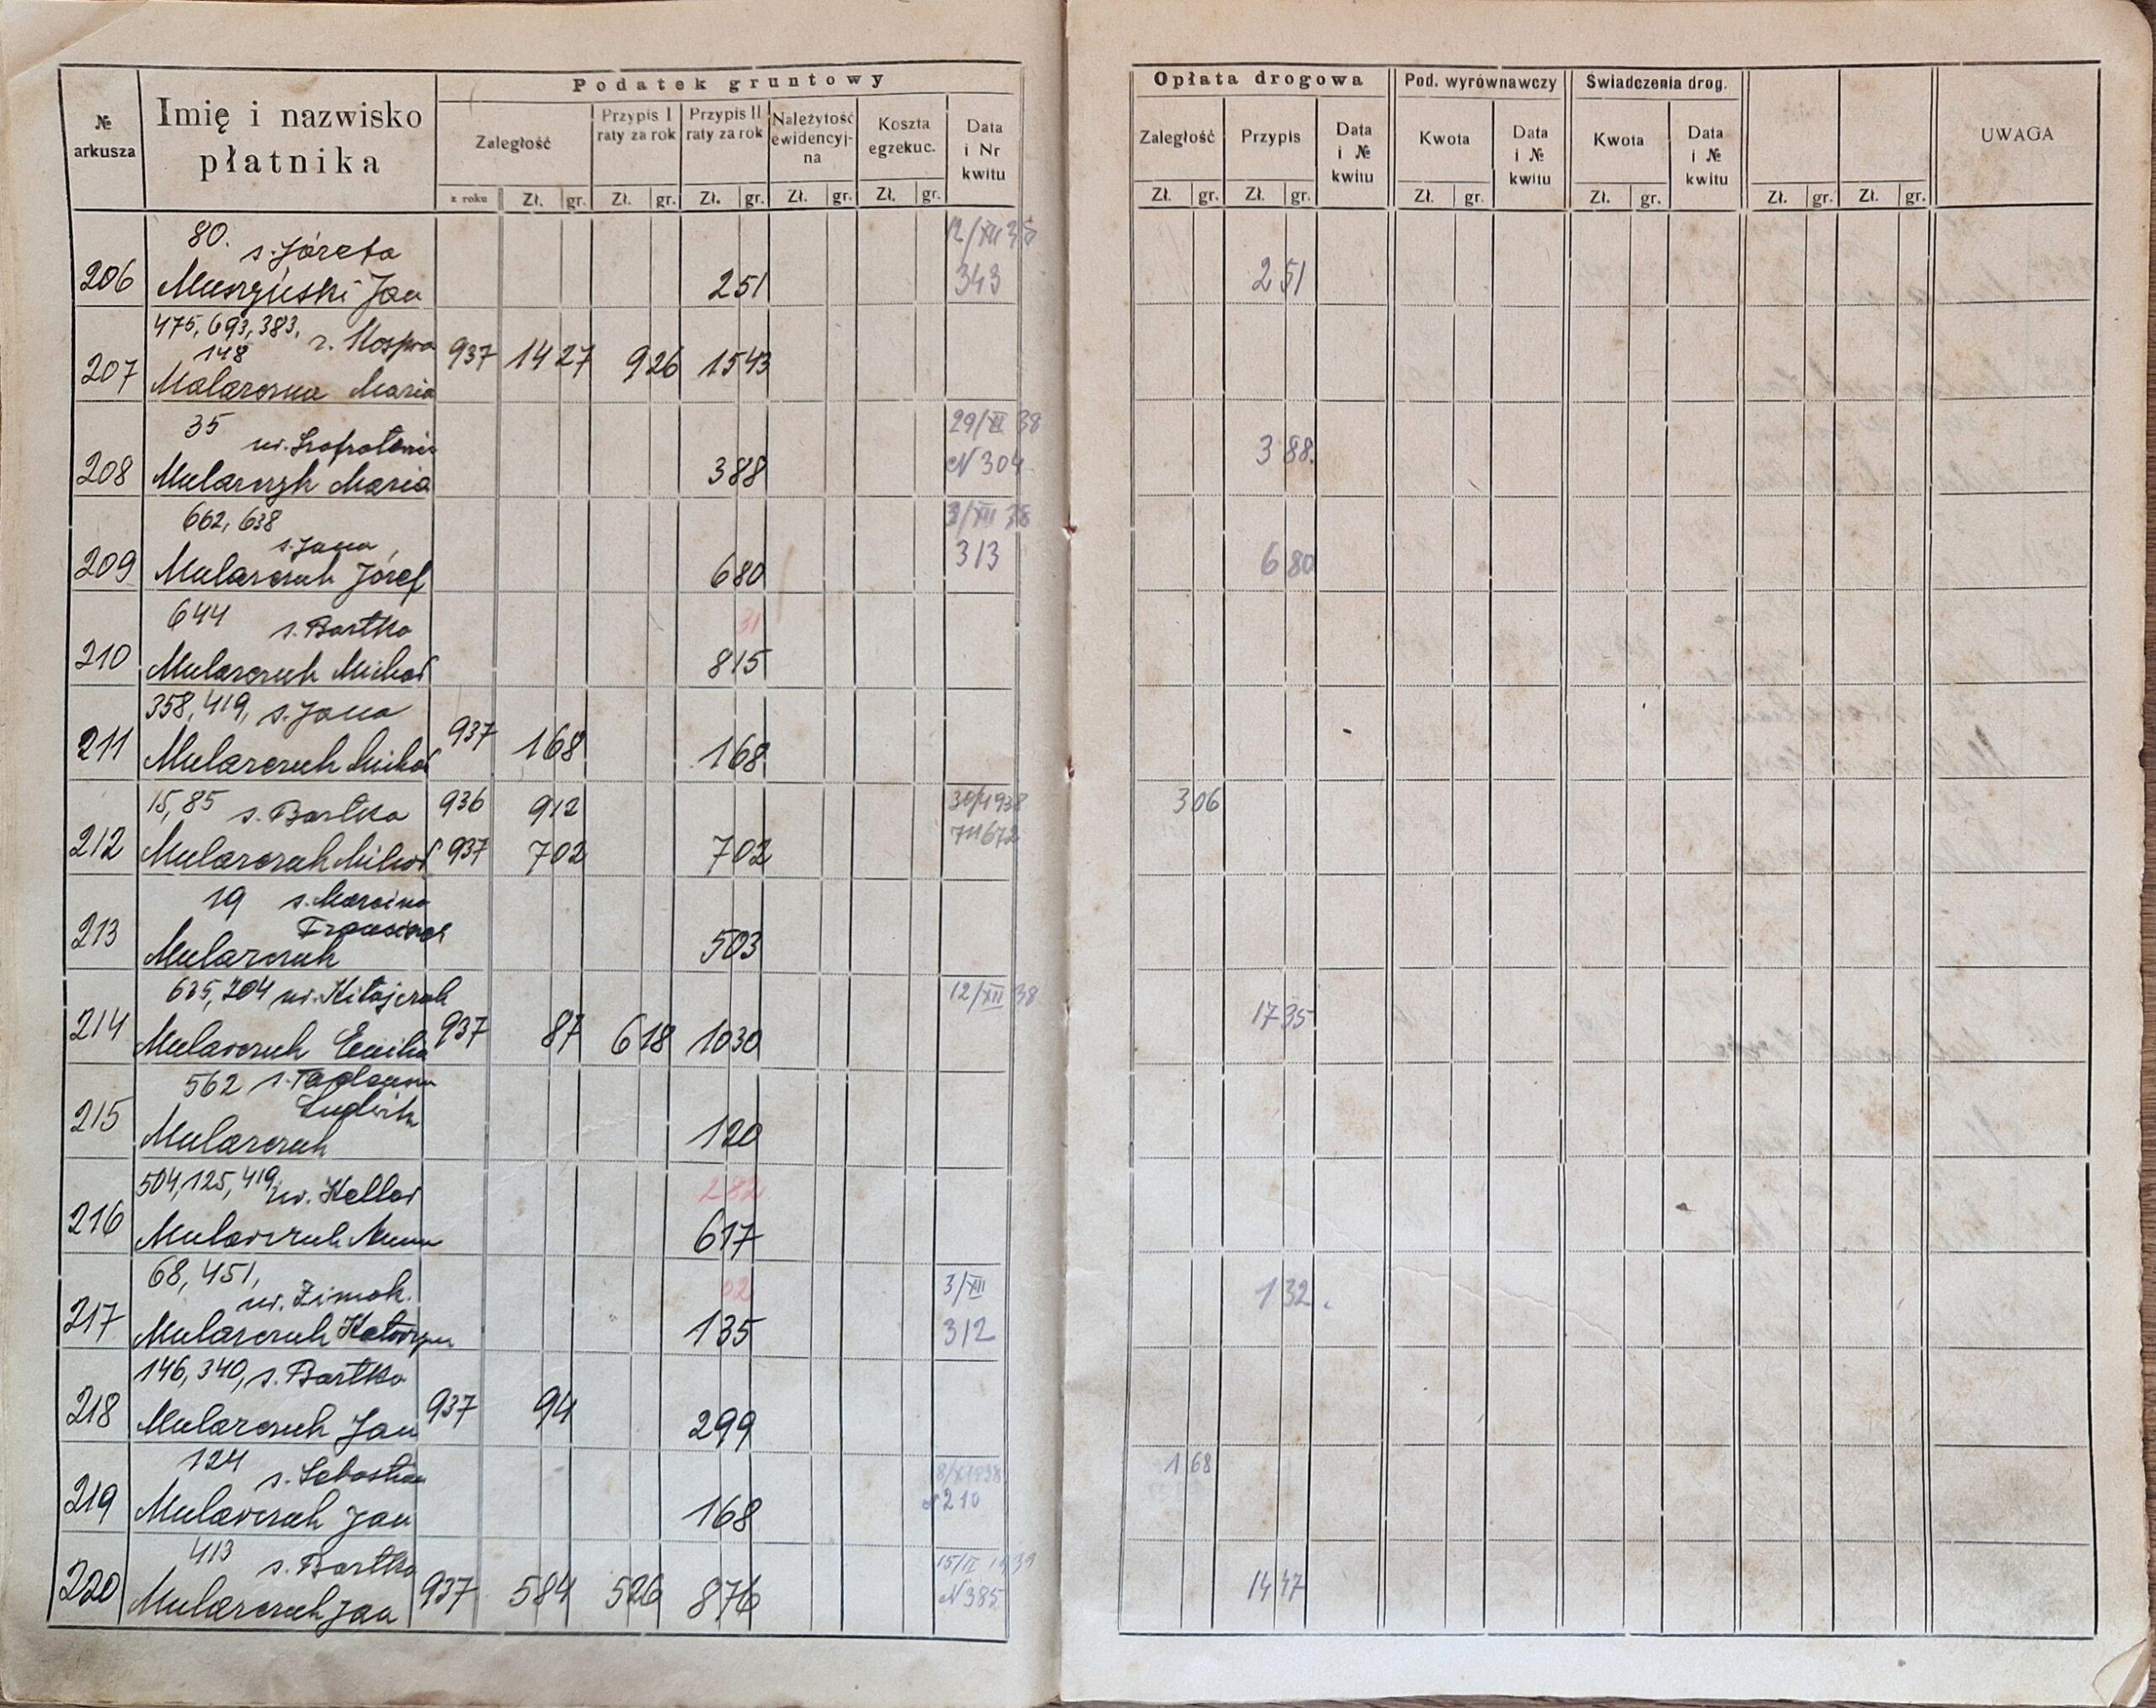 Podatek gruntowy
№ arkusza
Imię i nazwisko płatnika
Zaległość
Przypis I raty za rok
Przypis II raty za rok
Należytość ewidencyj-na
Koszta egzekuc.
Data i Nr kwitu
z roku Zł. gr. Zł. gr. Zł. gr. Zł. gr. Zł. gr.
Opłata drogowa
Pod. wyrównawczy
Świadczenia drog.
UWAGA
Zaległość
Przypis
Data i № kwitu
Kwota
Data i № kwitu
Kwota
Data i № kwitu
Zł. gr. Zł. gr. Zł. gr. Zł. gr. Zł. gr. Zł. gr.
80. s. Józefa 12/XII 38
206 Jan 2 51 343 2 51
475, 693, 383,
148
207 Maria 937 14 27 9 26 15 43
35 29/XI 38
208 Mularczyk Maria 3 88 N 304 3 88
662, 638 3/XII 38
s. Jana
209 Mularczuk Józef 6 80 313 6 80
644 s. Bartka 31
210 Mularczuk Michał 8 15
358, 419, s. Jana
211 Mularczuk Michał 937 1 68 1 68
15, 85 s. Bartka 936 9 12 3 06
212 Mularczuk Michał 937 7 02 7 02
19 s. Marcina
Franciszek
213 Mularczuk 5 03
625, 704 w. Kitajczuk 12/XII 38
214 Mularczuk Emilia 937 87 6 18 10 30 17 35
562 s.
Ludwik
215 Mularczuk 1 20
504, 125, 419, w. 2 82
216 Mularczuk Anna 6 17
68, 451, 02 3/XII
w. Zimoch.
217 Mularczuk Katarzyna 1 35 312 1 32.
146, 340, s. Bartka
218 Mularczuk Jan 937 94 2 99
124 s. Sebastian 8/XI 938 1 68
219 Mularczuk Jan 1 68 N 210
413 s. Bartka
220 Mularczuk Jan 937 5 84 5 26 8 76 N 385 14 47